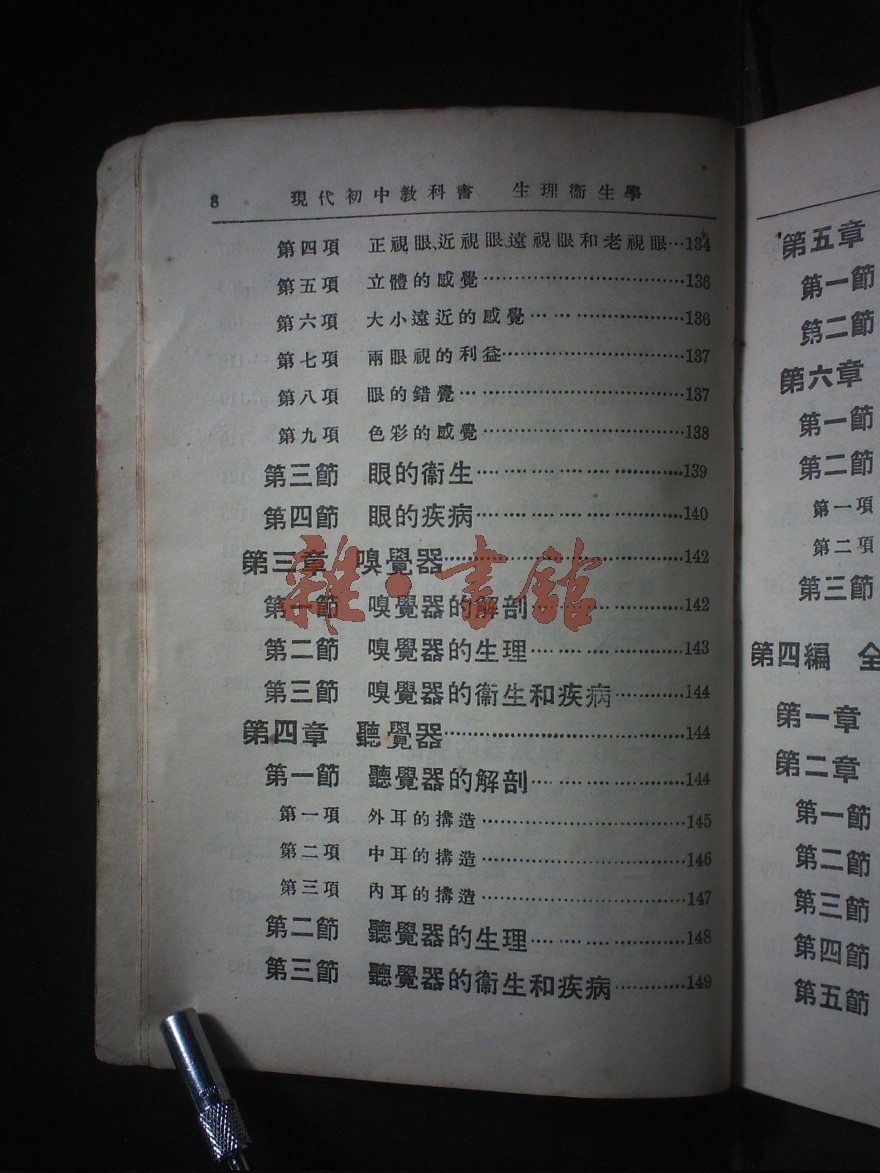 8 現代初中教科書 生理衞生學
第四項 正視眼、近視眼、遠視眼和老視眼…134
第五項 立體的感覺……………………………136
第六項 大小遠近的感覺… … …………………136
第七項 兩眼視的利益…………………………137
第八項 眼的錯覺… … … … … … ……………137
第九項 色彩的感覺……………………………138
第三節 眼的衞生… … … … … … …………139
第四節 眼的疾病… … … … … … …………140
第三章 嗅覺器…………………………………142
第一節 嗅覺器的解剖… … … … …………142
第二節 嗅覺器的生理… … … … …………143
第三節 嗅覺器的衞生和疾病…………144
第四章 聽覺器…………………………………144
第一節 聽覺器的解剖… … … … …………144
第一項 外耳的搆造……………………………145
第二項 中耳的搆造……………………………146
第三項 內耳的搆造……………………………147
第二節 聽覺器的生理… … … … …………148
第三節 聽覺器的衞生和疾病…………149
雜·書館
第五章
第一節
第二節
第六章
第一節
第二節
第一項
第二項
第三節
第四編 全
第一章
第二章
第一節
第二節
第三節
第四節
第五節